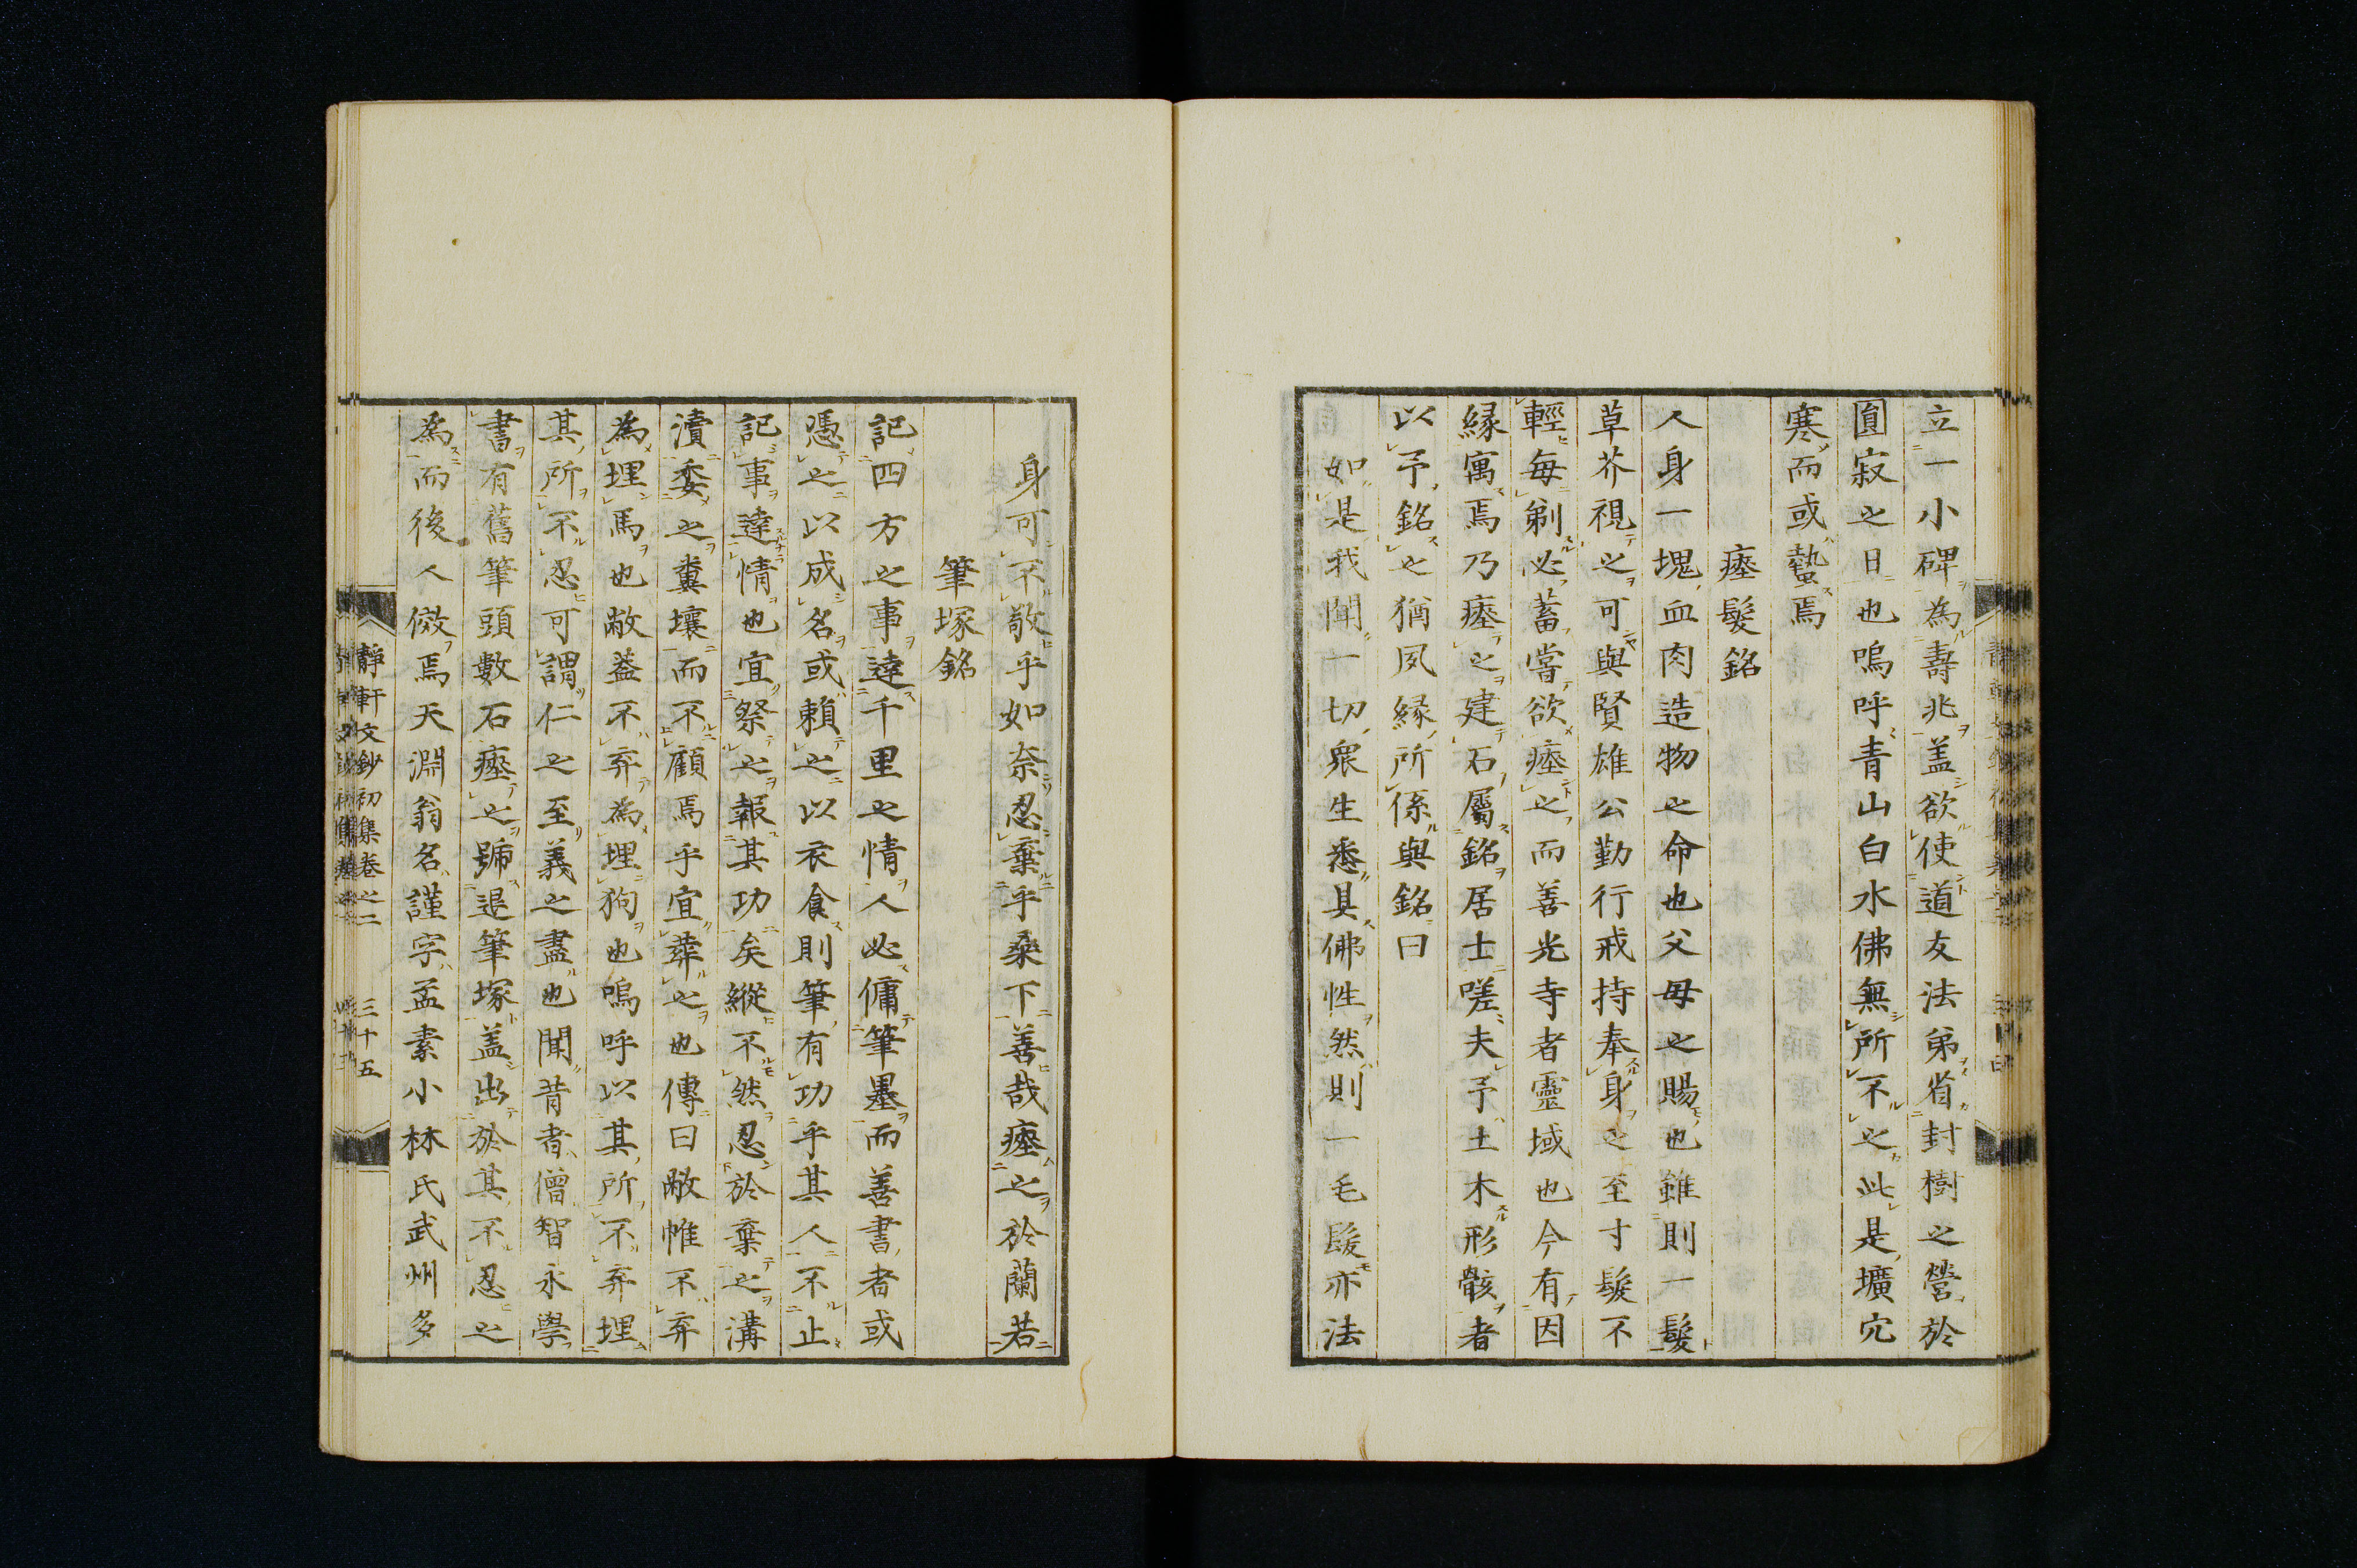 立一小碑為壽兆盖欲使道友法弟省封樹之營於
圓寂之日也嗚呼青山白水佛無所不之此是壙穴
寒而或蟄焉
瘞髮銘
人身一塊血肉造物之命也父母之賜也雖則一髮
草芥視之可與賢雄公勤行戒持奉身之至寸髮不
輕每剃必蓄嘗欲瘞之而善光寺者靈域也今有因
縁寓焉乃瘞之建石屬銘居士嗟夫予土木形骸者
以予銘之猶夙縁所係與銘曰
如是我聞一切衆生悉具佛性然則一毛髮亦法
身可不敬乎如奈忍棄乎桑下善哉瘞之於蘭若
筆塚銘
記四方之事達千里之情人必傭筆墨而善書者或
憑之以成名或賴之以衣食則筆有功乎其人不止
記事達情也宜祭之報其功矣縱不然忍於棄之溝
瀆委之糞壤而不顧焉乎宜葬之也傳曰敝帷不弃
為埋馬也敝盖不弃為埋狗也嗚呼以其所不弃埋
其所不忍可謂仁之至義之盡也聞昔者僧智永學
書有舊筆頭數石瘞之號退筆塚盖出於其不忍之
為而後人傚焉天淵翁名謹字孟素小林氏武州多
靜軒文鈔初集卷之二 三十五